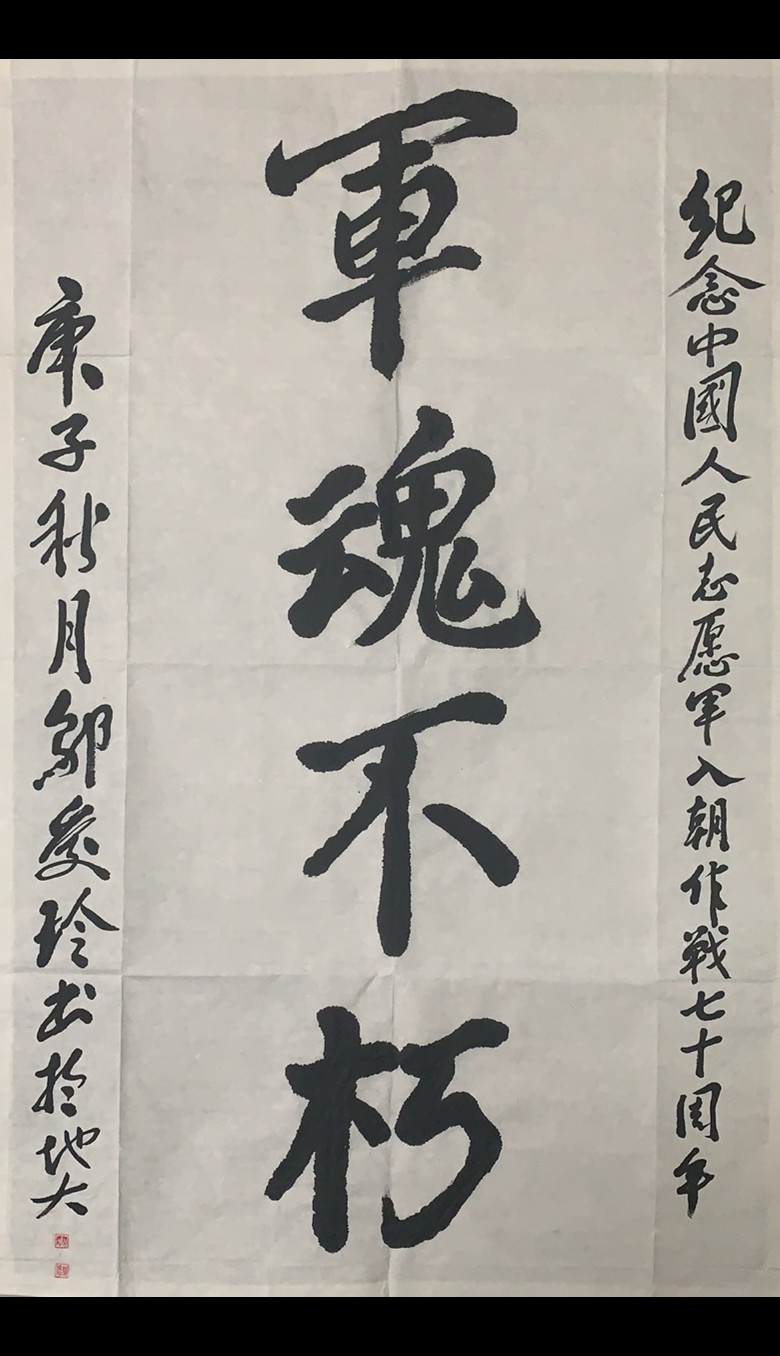 紀念中國人民志愿军入朝作戦七十周年
軍魂不朽
庚子秋月鄔爱玲书於地大